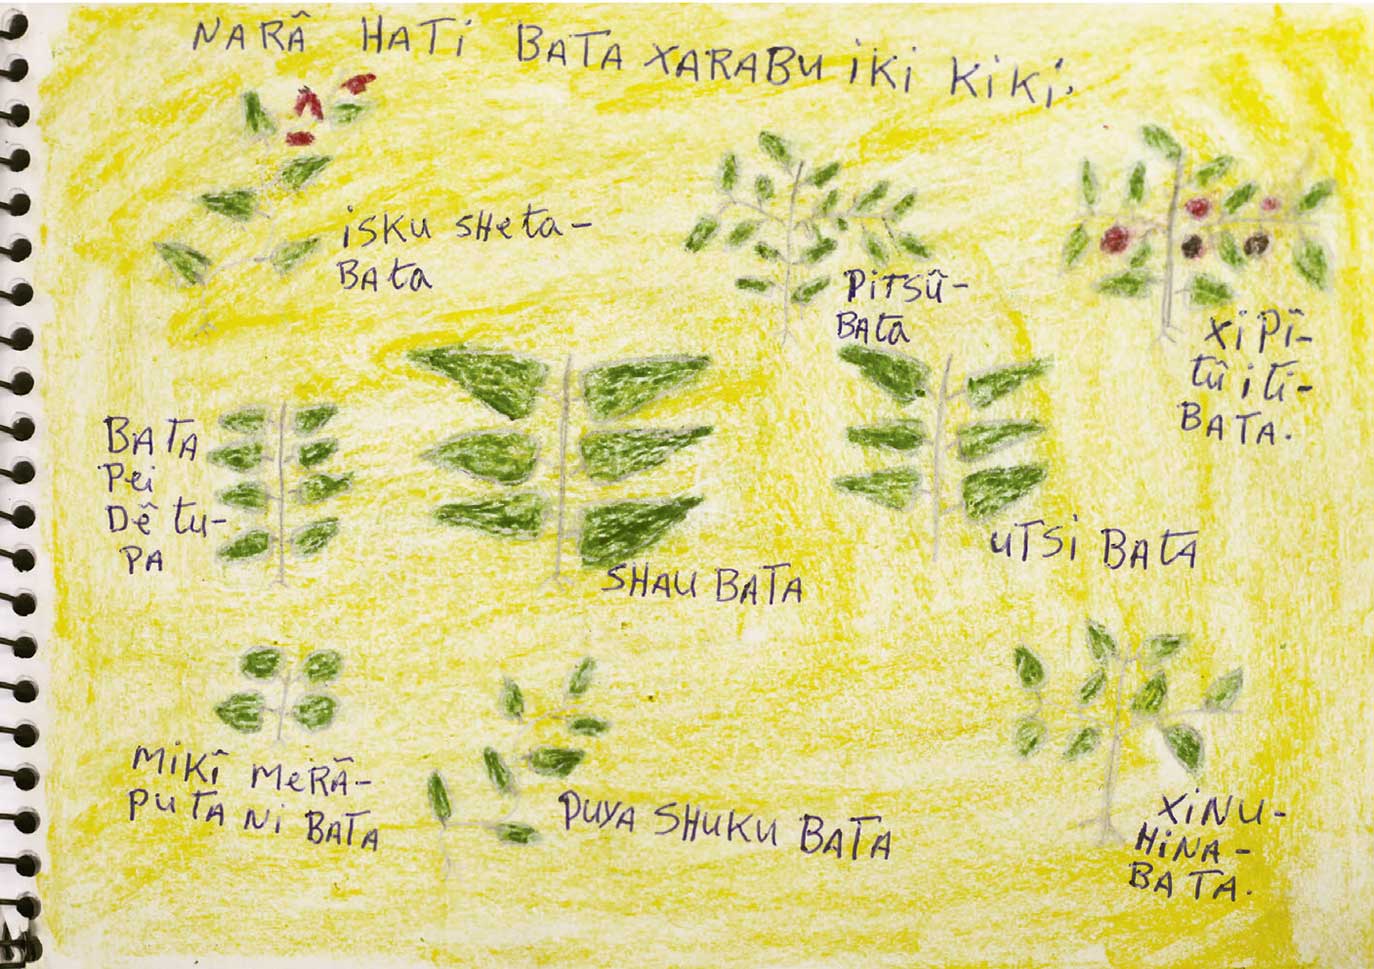 NARÂ HATi BATA XARABU iKi KiKi.
iSKU SHeta-
BAta
PiTSÛ-
BAta
XiPÎ-
tû iti-
BATA.
BATA
Pei
DÊ tu-
PA
SHAU BATA
UTSi BAtA
MiKÎ MeRÂ-
PUTA Ni BATA
PUYA SHUKU BATA
XiNU-
HiNA-
BATA.